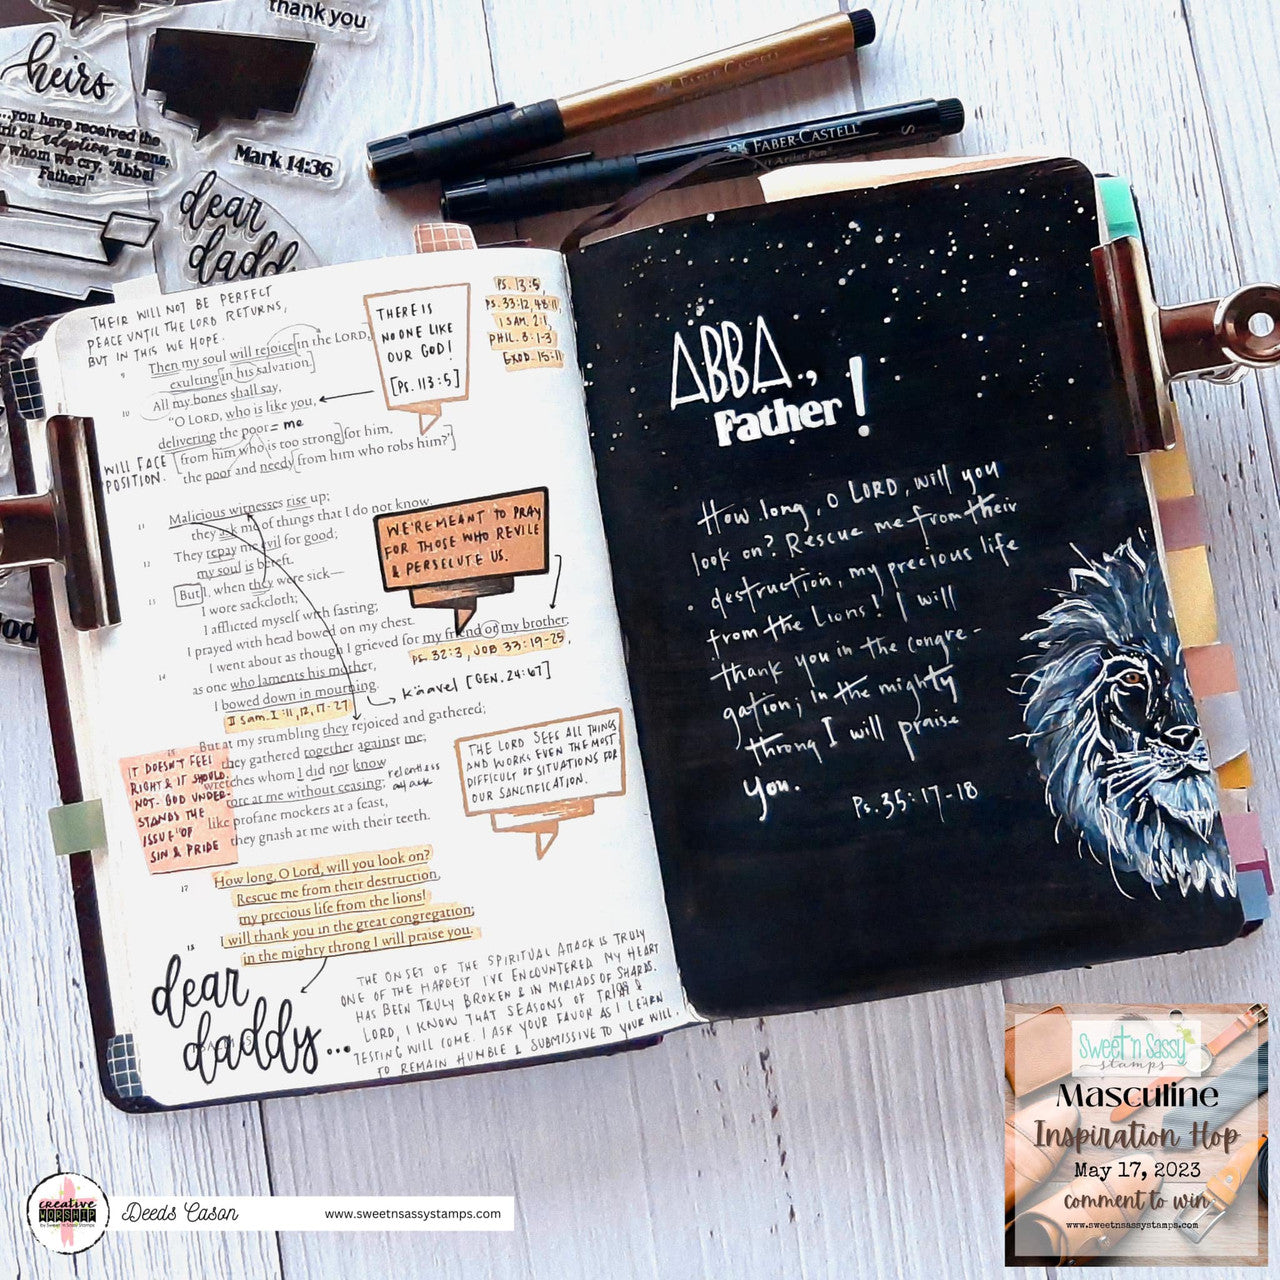 thank you
heirs
...you have received the
rit of adoption as sons,
y whom we cry, "Abba!
Father!"
Mark 14:36
dear
daddy
FABER-CASTELL
FABER-CASTELL
Artist Pen
S
THEIR WILL NOT BE PERFECT
PEACE UNTIL THE LORD RETURNS,
BUT IN THIS WE HOPE.
9 Then my soul will rejoice [in the LORD,
exulting [in his salvation.]
10 All my bones shall say,
"O LORD, who is like you,
delivering the poor = me
[from him who is too strong] for him,
the poor and needy [from him who robs him?"]
WILL FACE
POSITION.
THERE IS
NO ONE LIKE
OUR GOD!
[PS. 113:5]
PS. 13:5,
PS. 33:12, 48:11,
1 SAM. 2:1,
PHIL. 3:1-3
EXOD. 15:11
11 Malicious witnesses rise up;
they ask me of things that I do not know.
12 They repay me evil for good;
my soul is bereft.
13 But I, when they were sick—
I wore sackcloth;
I afflicted myself with fasting;
I prayed with head bowed on my chest.
14 I went about as though I grieved for my friend or my brother;
as one who laments his mother,
I bowed down in mourning.
WE'RE MEANT TO PRAY
FOR THOSE WHO REVILE
& PERSECUTE US.
PS. 32:3, JOB 33:19-25,
kāavel [GEN. 24:67]
II Sam. 1:11, 12, 17-27
15 But at my stumbling they rejoiced and gathered;
they gathered together against me;
wretches whom I did not know
tore at me without ceasing; relentless
attack
like profane mockers at a feast,
they gnash at me with their teeth.
IT DOESN'T FEEL
RIGHT & IT SHOULD
NOT. GOD UNDER-
STANDS THE
ISSUE OF
SIN & PRIDE
THE LORD SEES ALL THINGS
AND WORKS EVEN THE MOST
DIFFICULT OF SITUATIONS FOR
OUR SANCTIFICATION.
17 How long, O Lord, will you look on?
Rescue me from their destruction,
my precious life from the lions!
18 I will thank you in the great congregation;
in the mighty throng I will praise you.
dear
daddy...
THE ONSET OF THE SPIRITUAL ATTACK IS TRULY
ONE OF THE HARDEST I'VE ENCOUNTERED. MY HEART
HAS BEEN TRULY BROKEN & IN MIRIADS OF SHARDS.
LORD, I KNOW THAT SEASONS OF TRIAL &
TESTING WILL COME. I ASK YOUR FAVOR AS I LEARN
TO REMAIN HUMBLE & SUBMISSIVE TO YOUR WILL.
ABBA,
Father!
How long, O LORD, will you
look on? Rescue me from their
destruction, my precious life
from the lions! I will
thank you in the congre-
gation; in the mighty
throng I will praise
you.
Ps. 35:17-18
Sweet 'n Sassy
stamps
Masculine
Inspiration Hop
May 17, 2023
comment to win
www.sweetnsassystamps.com
creative
WORSHIP
by Sweet 'n Sassy Stamps
Deeds Cason
www.sweetnsassystamps.com